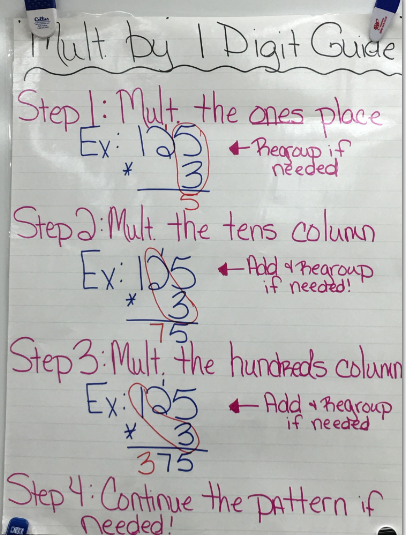 Mult. by 1 Digit Guide
Step 1: Mult. the ones place
Ex: 125
* 3
5
Regroup if
needed
Step 2: Mult. the tens column
Ex: 125
* 3
75
Add & Regroup
if needed!
Step 3: Mult. the hundreds column
Ex: 125
* 3
375
Add & Regroup
if needed
Step 4: Continue the pattern if
needed!